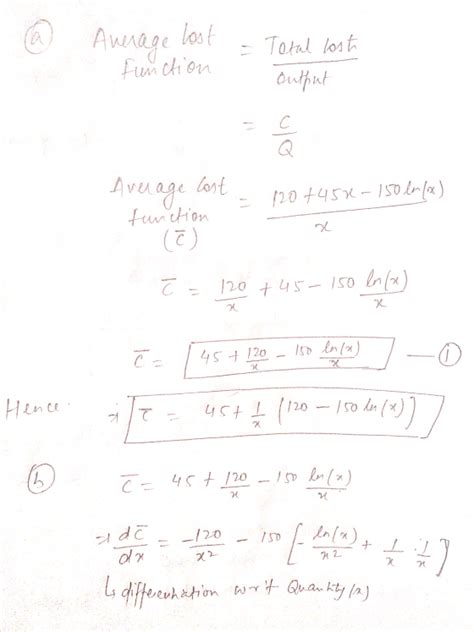 (a) Average Cost Function = Total Cost / Output
= C / Q
Average Cost function (C̄) = 120 + 45x - 150 ln(x) / x
C̄ = 120/x + 45 - 150 ln(x)/x
C̄ = 45 + 120/x - 150 ln(x)/x — (1)
Hence ⇒ C̄ = 45 + 1/x (120 - 150 ln(x))
(b) C̄ = 45 + 120/x - 150 ln(x)/x
⇒ dC̄/dx = -120/x2 - 150 [- ln(x)/x2 + 1/x · 1/x]
↳ differentiation w.r.t Quantity (x)